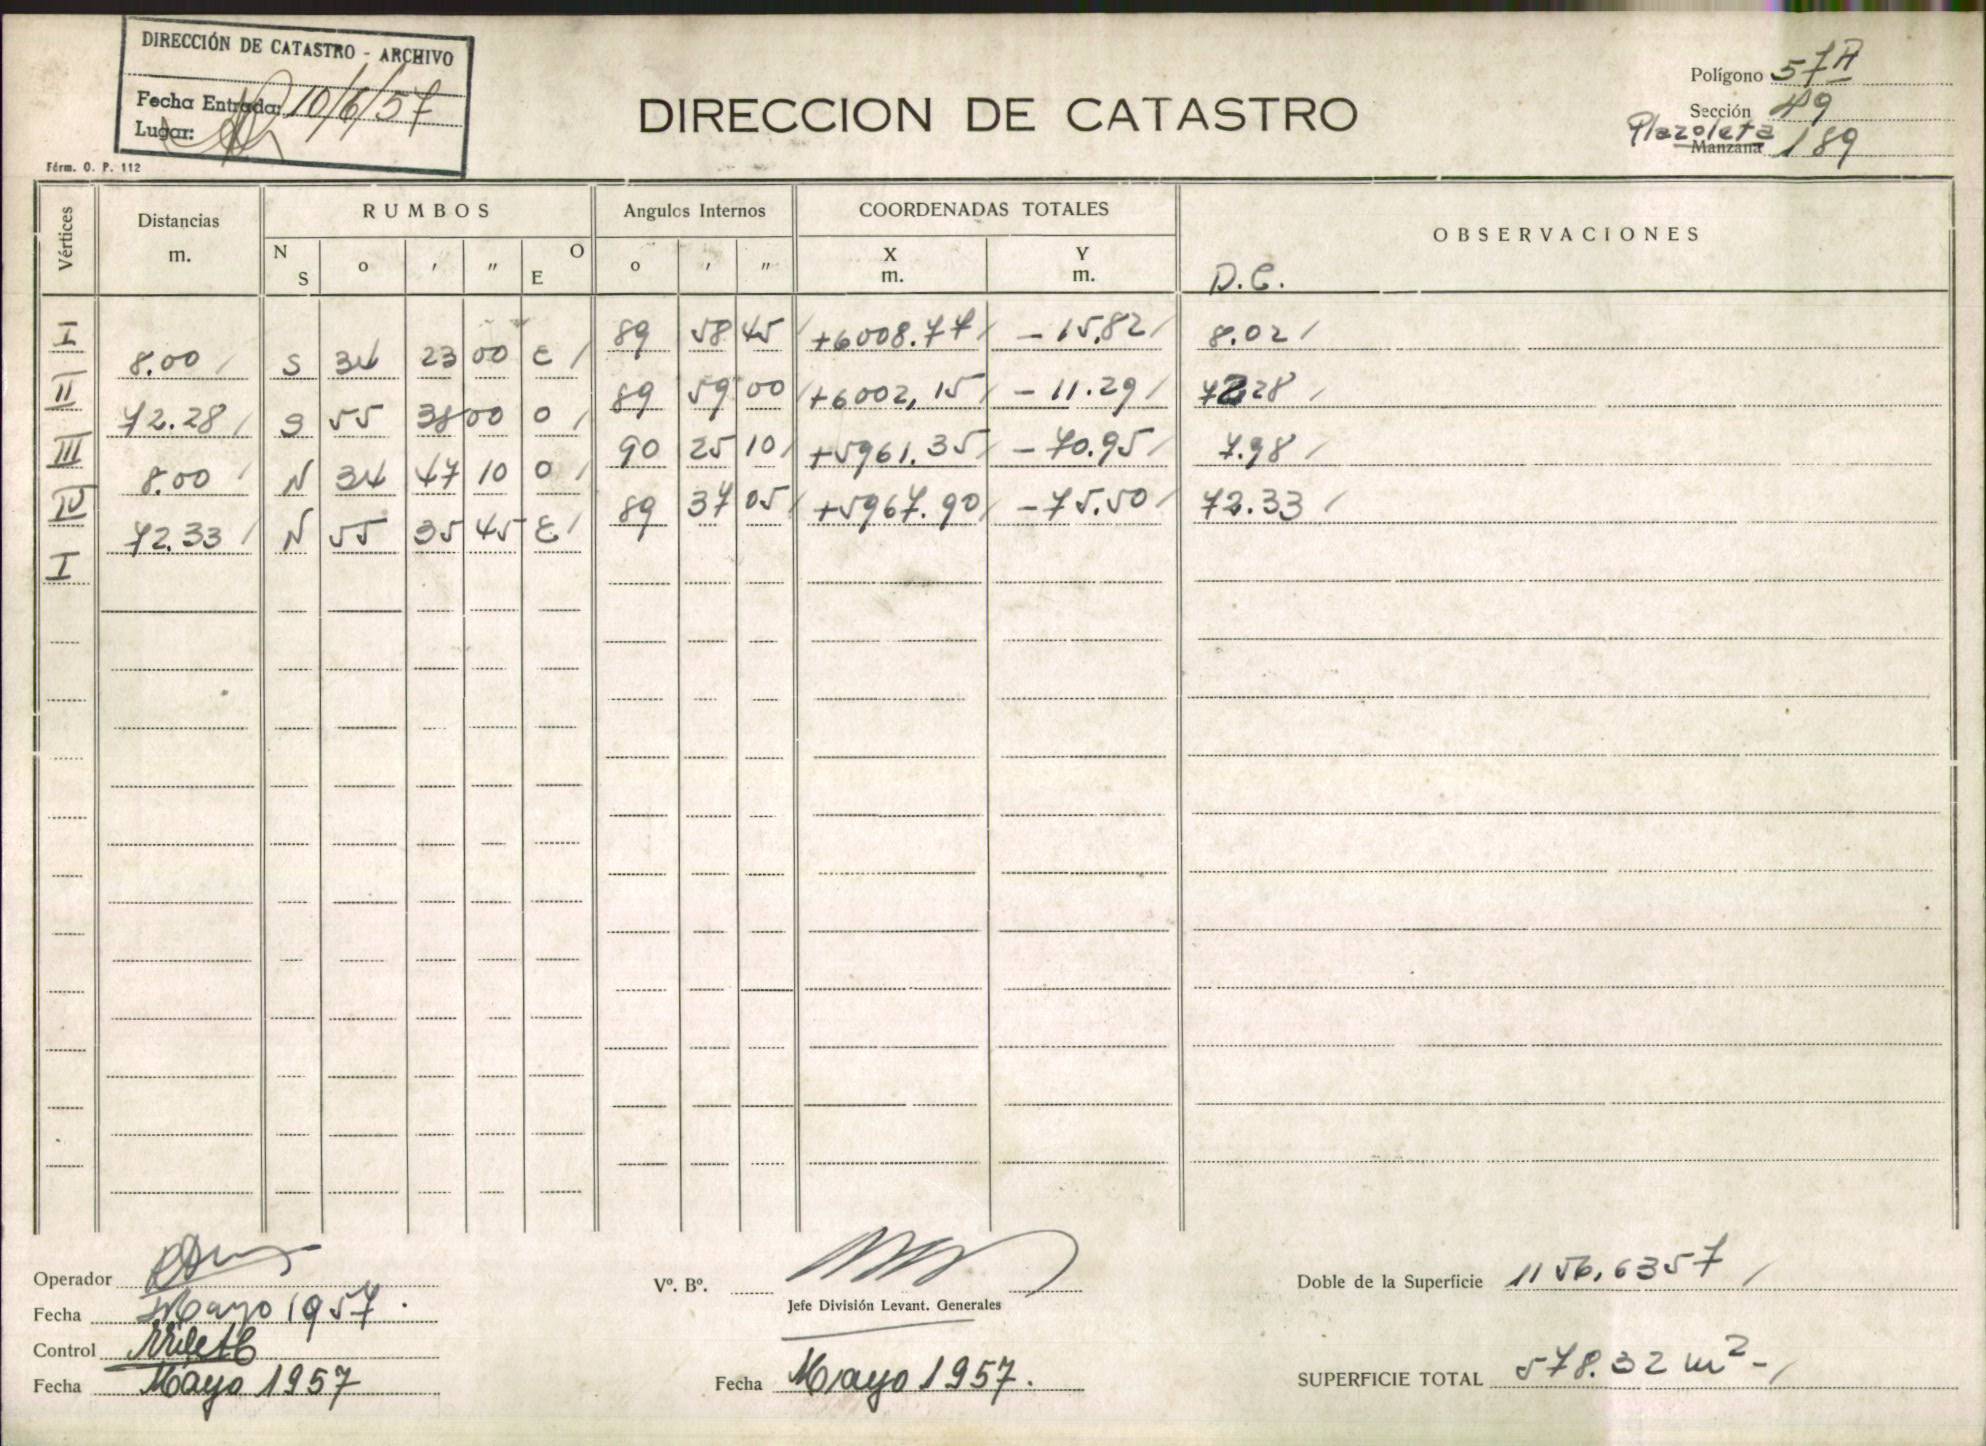 DIRECCIÓN DE CATASTRO - ARCHIVO
Fecha Entrada: 10/6/57
Lugar:
Férm. O. P. 112
DIRECCION DE CATASTRO
Polígono 57A
Sección 49
Plazoleta
Manzana 189
Vértices Distancias m. RUMBOS Angulos Internos COORDENADAS TOTALES OBSERVACIONES
N S o ' " O E o ' " X m. Y m. D.C.
I 89 58 45 +6008.77 -15,82 8.02
8.00 S 34 23 00 E
II 89 59 00 +6002,15 -11.29 72.28
72.28 S 55 38 00 O
III 90 25 10 +5961.35 -70.95 7.98
8.00 N 34 47 10 O
IV 89 37 05 +5967.90 -75.50 72.33
72.33 N 55 35 45 E
I
Operador
Fecha Mayo 1957.
Control
Fecha Mayo 1957
Vº. Bº.
Jefe División Levant. Generales
Fecha Mayo 1957.
Doble de la Superficie 1156,6357
SUPERFICIE TOTAL 578.32 m² -